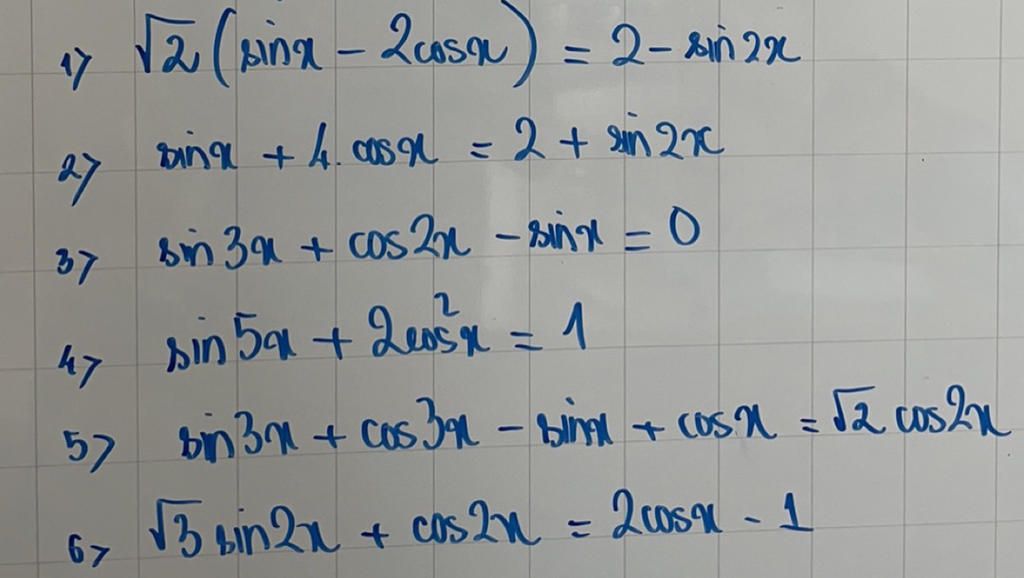 1) √2 (sinx - 2cosx) = 2 - sin2x
2) sinx + 4. cosx = 2 + sin2x
3) sin3x + cos2x - sinx = 0
4) sin5x + 2cos²x = 1
5) sin3x + cos3x - sinx + cosx = √2 cos2x
6) √3 sin2x + cos2x = 2cosx - 1